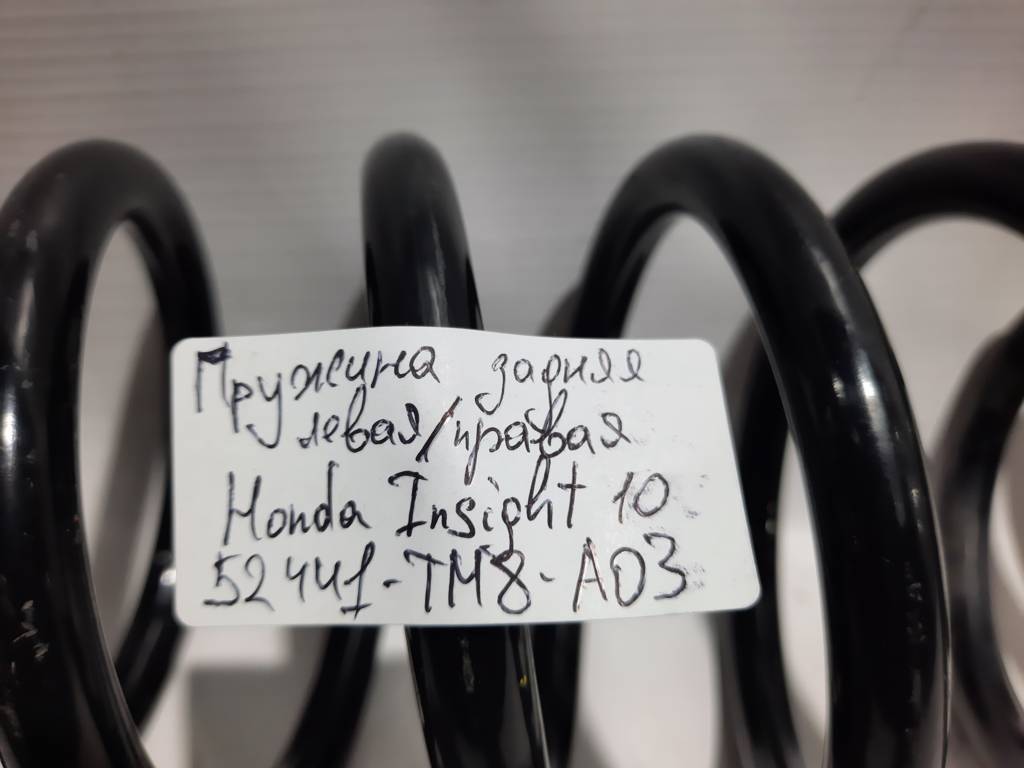 Пружина задняя
левая/правая
Honda Insight 10
52441-TM8-A03